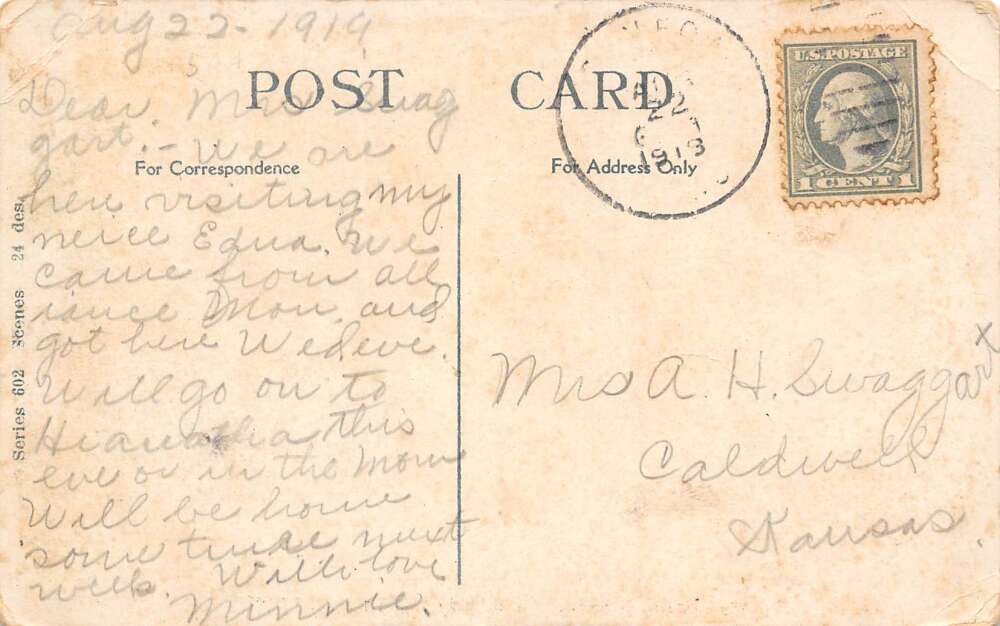 Aug 22 - 1919
POST CARD
For Correspondence
For Address Only
Dear Mrs Swag
gart. - We are
here visiting my
neice Edna. We
came from all
iance Mon. and
got here Wed eve.
Will go on to
Hiawatha this
eve or in the Morn
Will be home
some time next
week. With love
Minnie.
Series 602 Scenes 24 des.
22
U.S. POSTAGE
1 CENT 1
Mrs A. H. Swaggart
x
Caldwell
Kansas.